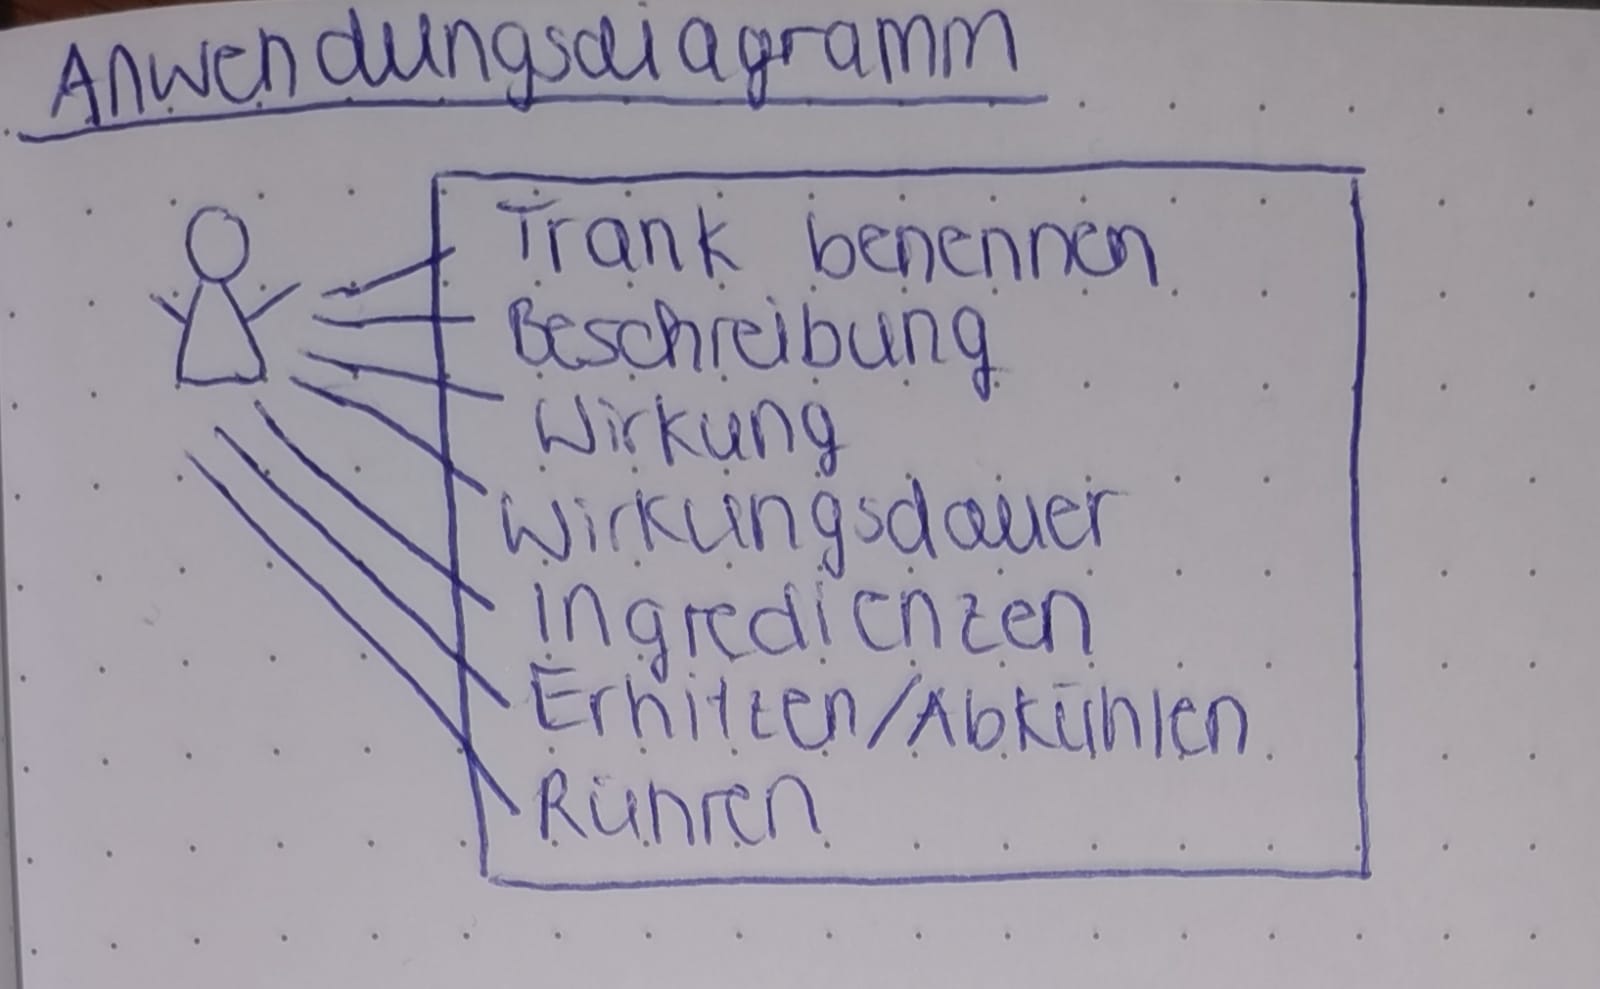 Anwendungsdiagramm
Trank benennen
Beschreibung
Wirkung
Wirkungsdauer
Ingredienzen
Erhitzen/Abkühlen
Rühren